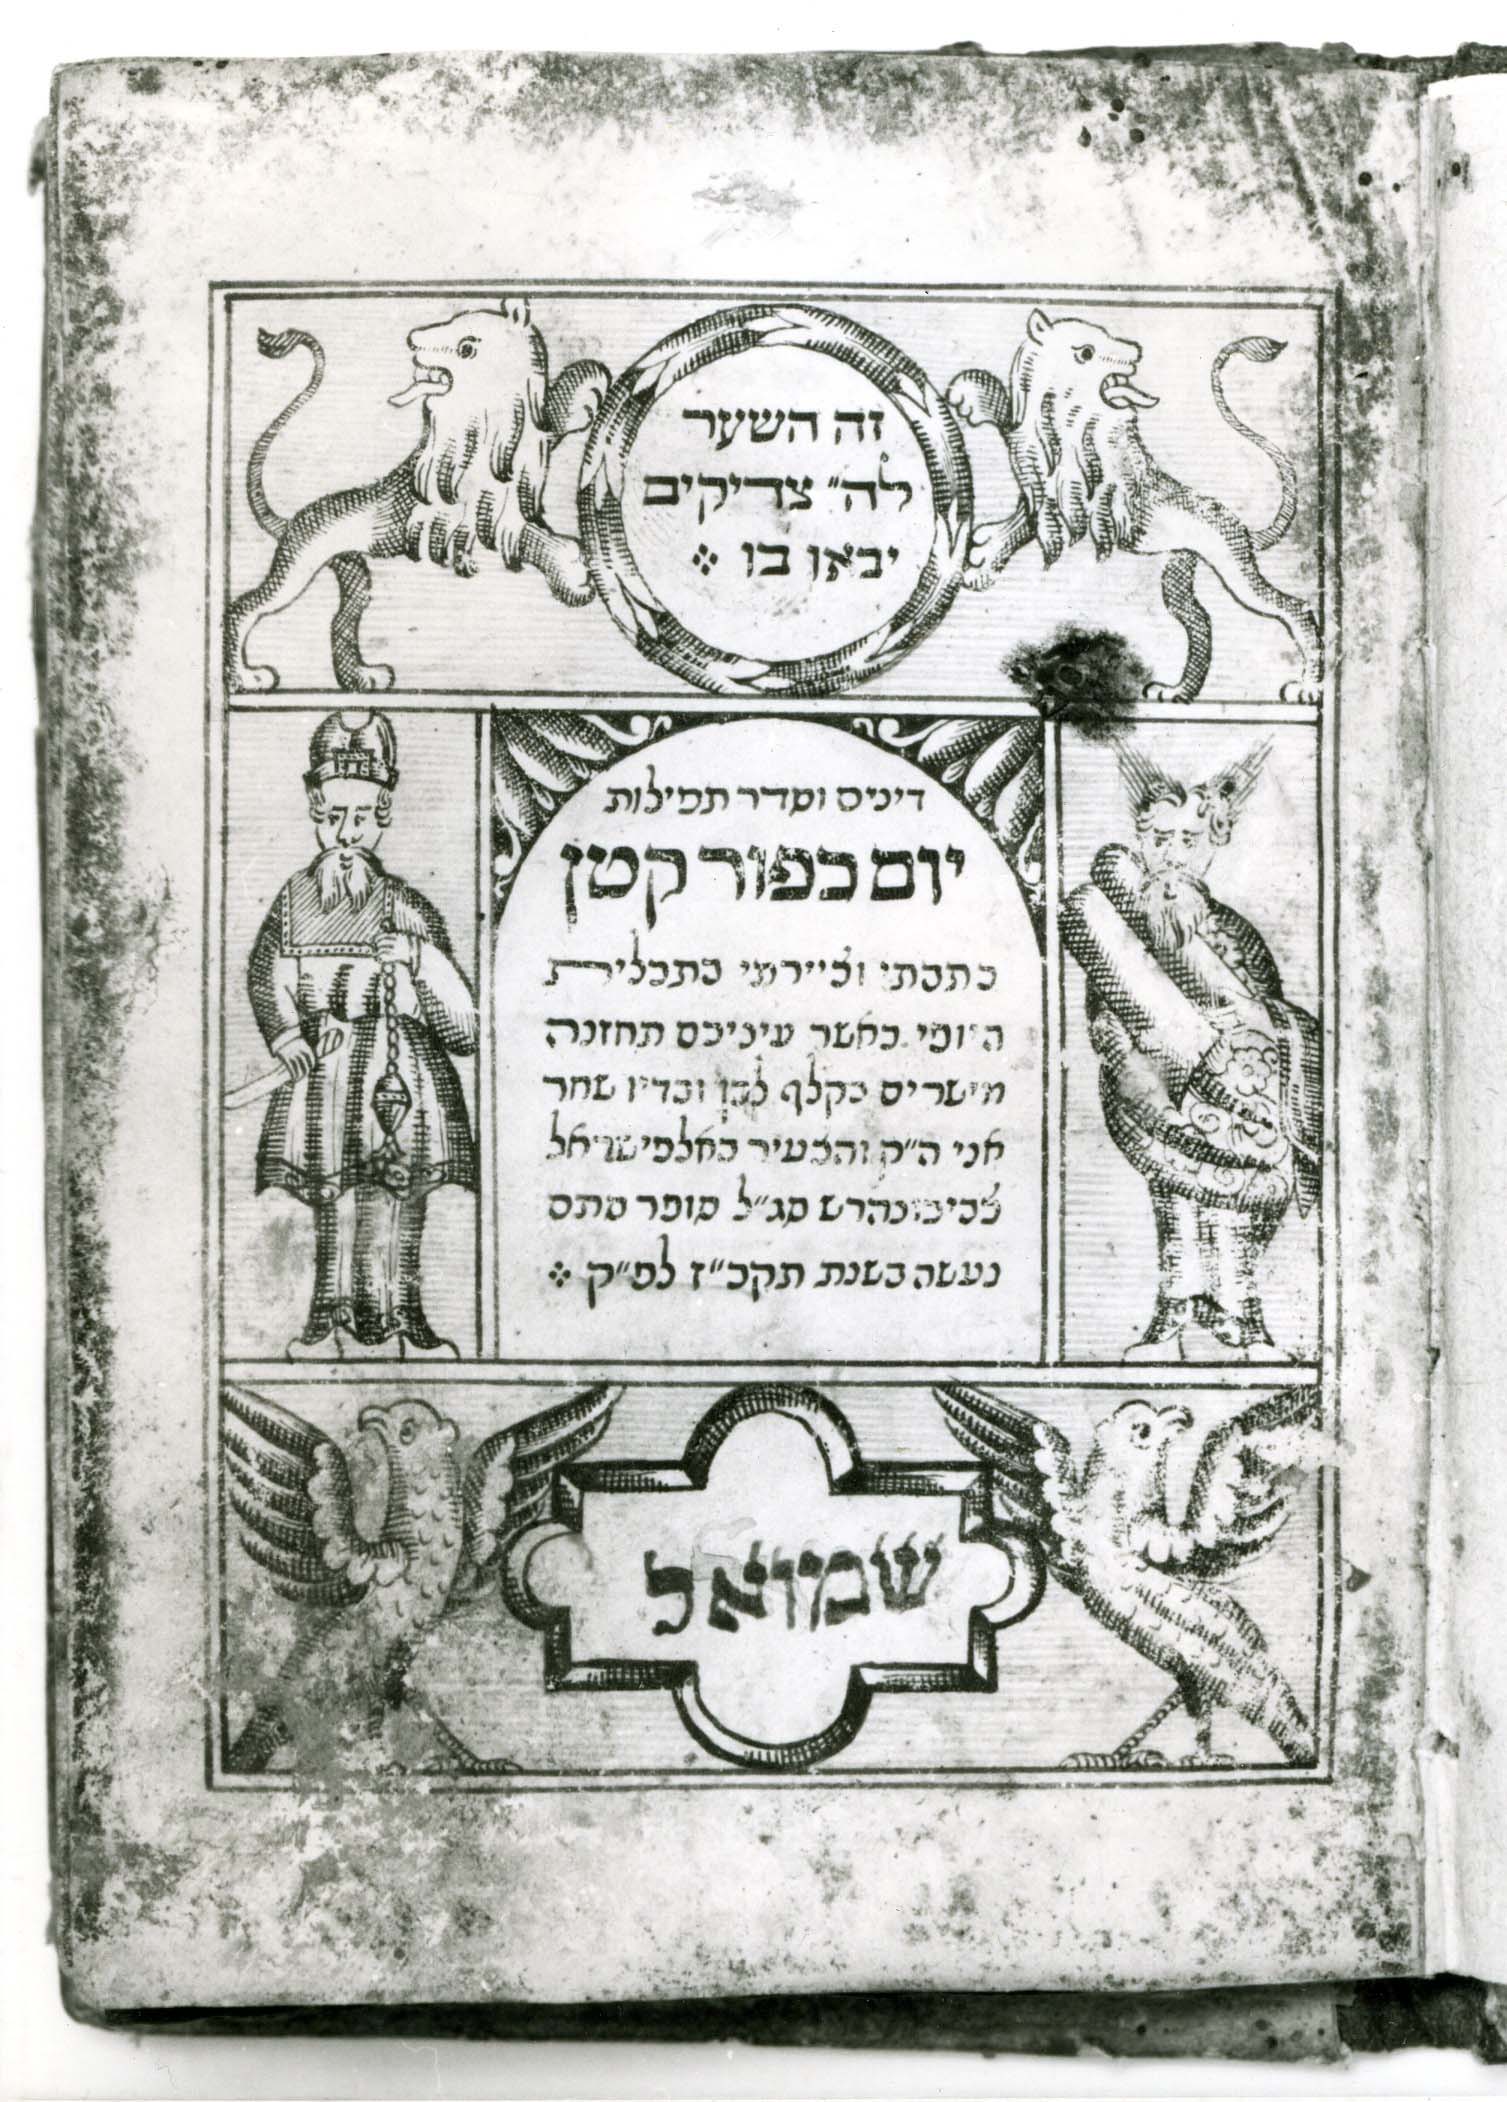 זה השער
לה״ צדיקים
יבאו בו
דינים וסדר תפילות
יום כפור קטן
כתבתי וציירתי בתכלית
היופי כאשר עיניכם תחזנה
מישרים בקלף לבן ובדיו שחר
אני ה״ק והצעיר
סג״ל סופר מתם
נעשה בשנת תקכ״ז לפ״ק
שמואל